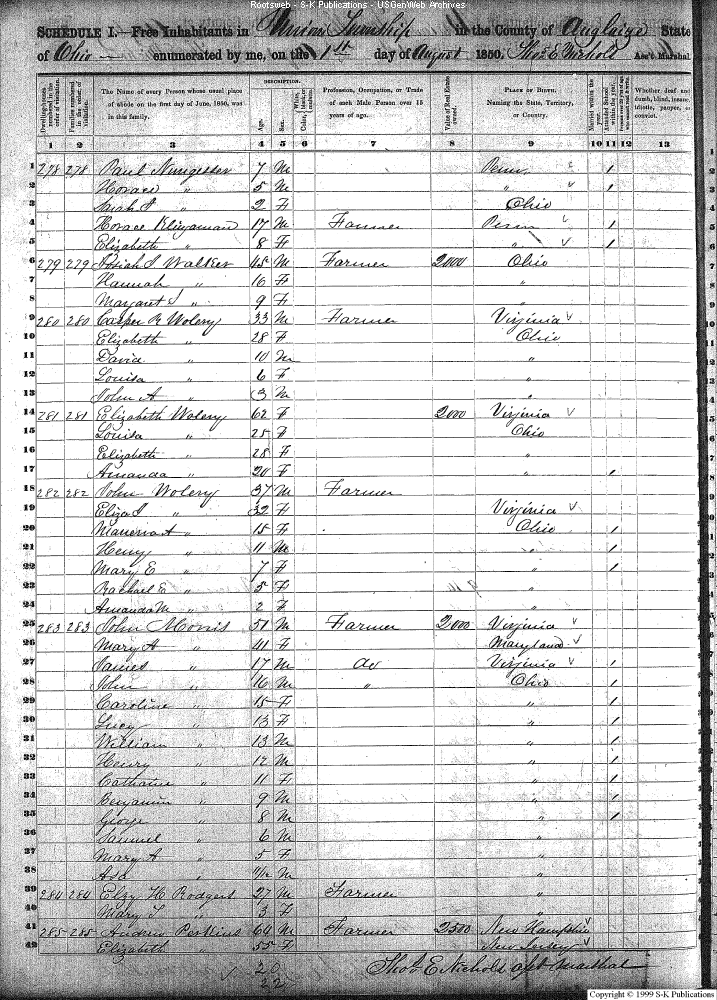 Rootsweb - S-K Publications - USGenWeb Archives
SCHEDULE I.—Free Inhabitants in Union Township in the County of Auglaize State
of Ohio enumerated by me, on the 1st day of August 1850. Thos E Nichols Ass't Marshal
DESCRIPTION.
Dwelling-houses numbered in the order of visitation.
Families numbered in the order of visitation.
The Name of every Person whose usual place of abode on the first day of June, 1850, was in this family.
Age.
Sex.
Color
Profession, Occupation, or Trade of each Male Person over 15 years of age.
Value of Real Estate owned.
PLACE OF BIRTH. Naming the State, Territory, or Country.
Married within the year.
Attended School within the year.
Whether deaf and dumb, blind, insane, idiotic, pauper, or convict.
1 2 3 4 5 6 7 8 9 10 11 12 13
1 278 278 Paul 7 M Penn 1
2 Horace " 5 M " 1
3 2 F Ohio
4 Horace 17 M Farmer Penn 1
5 Elizabeth " 8 F " 1
6 279 279 Walker 45 M Farmer 2000 Ohio
7 Hannah " 16 F "
8 Margaret " 9 F "
9 280 280 Casper R Wolery 33 M Farmer Virginia
10 Elizabeth " 28 F Ohio
11 David " 10 M "
12 Louisa " 6 F "
13 John A " 3 M "
14 281 281 Elizabeth Wolery 62 F 2000 Virginia
15 Louisa " 25 F Ohio
16 Elizabeth " 28 F "
17 Amanda " 20 F " 1
18 282 282 John Wolery 37 M Farmer
19 Eliza J " 32 F Virginia
20 A " 15 F Ohio 1
21 Henry " 11 M " 1
22 Mary E " 7 F " 1
23 Rachael E " 5 F "
24 Amanda M " 2 F "
25 283 283 John Morris 51 M Farmer 2000 Virginia
26 Mary A " 41 F Maryland
27 James " 17 M do Virginia 1
28 John " 16 M " Ohio 1
29 Caroline " 15 F " 1
30 Lucy " 13 F " 1
31 William " 13 M " 1
32 Henry " 12 M " 1
33 Catharine " 11 F " 1
34 Benjamin " 9 M " 1
35 George " 8 M " 1
36 Samuel " 6 M "
37 Mary A " 5 F "
38 Asa " M "
39 284 284 Elzy H Rodgers 27 M Farmer "
40 Mary " 3 F "
41 285 285 Andrew Perkins 64 M Farmer 2500 New Hampshire
42 Elizabeth " 55 F New Jersey
20
22
Thos E Nichols Marshal
Copyright © 1999 S-K Publications